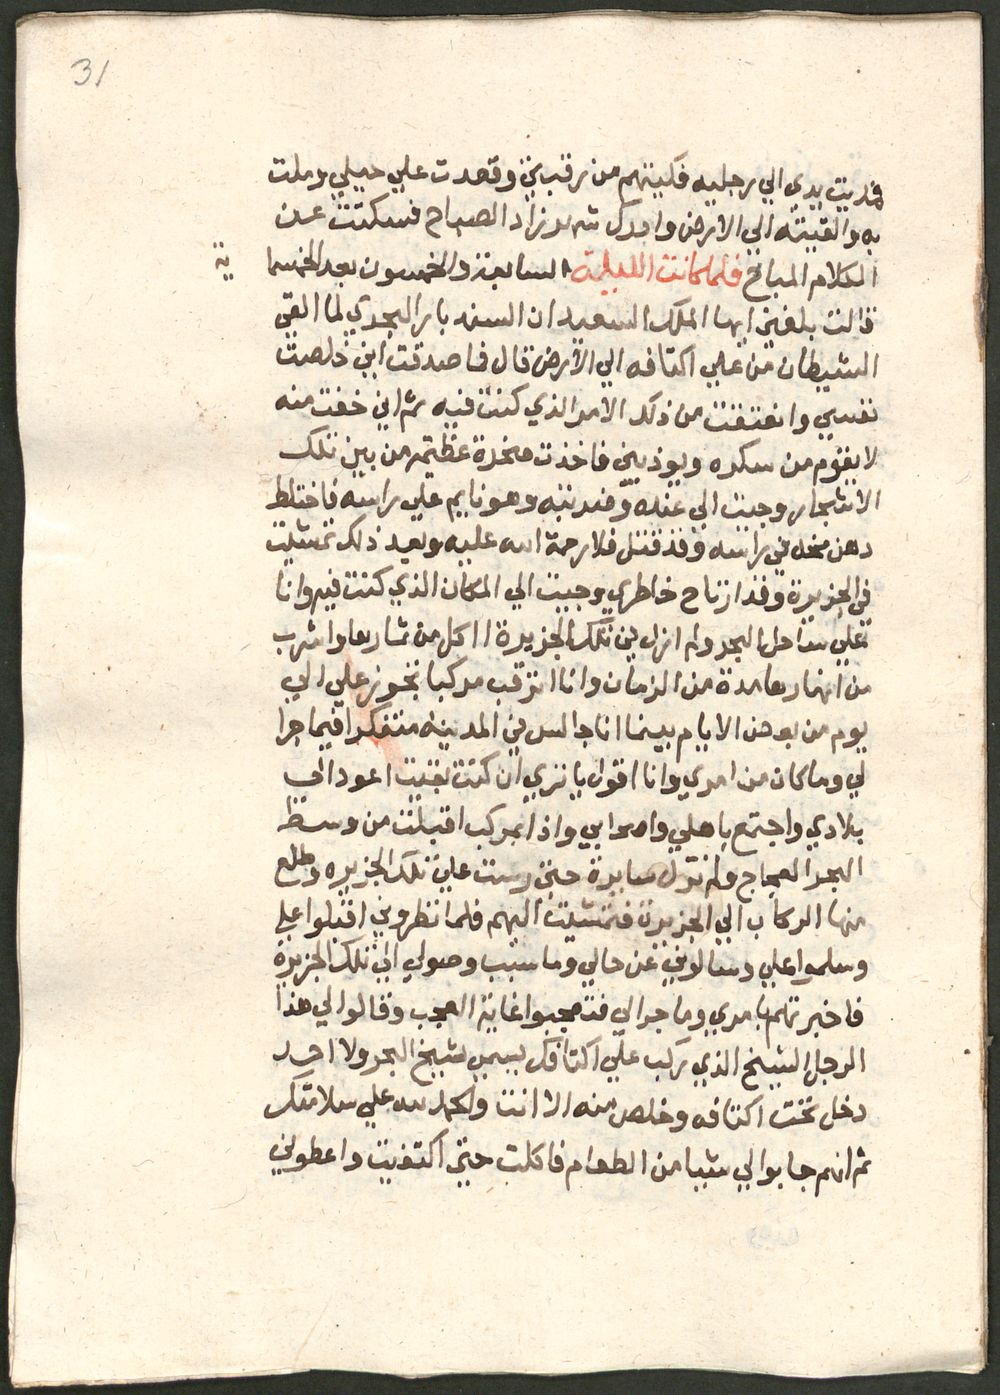 31
فمديت يدي الي رجليه فكيتهم من رقبتي وقعدت علي حيلي وملت
به والقيته الي الارض وادرك شهرزاد الصباح فسكتت عن
الكلام المباح فلما كانت الليلة السابعة والخمسون بعد الخمسما
ية
قالت بلغني ايها الملك السعيد ان السندباد البحري لما القي
الشيطان من علي اكتافه الي الارض قال فما صدقت اني خلصت
نفسي وانعتقت من ذلك الامر الذي كنت فيه ثم اني خفت منه
لا يقوم من سكره ويوذيني فاخذت صخرة عظيمة من بين تلك
الاشجار وجيت الي عنده وضربته وهو نايم علي راسه فاختلط
دهن مخه في راسه وقد قتل فلا رحمة الله عليه وبعد ذلك تمشيت
في الجزيرة وقد ارتاح خاطري وجيت الي المكان الذي كنت فيه وانا
علي ساحل البحر ولم ازل في تلك الجزيرة ااكل من ثمارها واشرب
من انهارها مدة من الزمان وانا اترقب مركبا تجوز علي الي
يوم من بعض الايام بينما انا جالس في المدينه متفكرا فيما جرا
لي وما كان من امري وانا اقول يا تري ان كنت بقيت اعود الي
بلادي واجتمع باهلي واصحابي واذا بمركب اقبلت من وسط
البحر العجاج ولم تزل سايرة حتي رست علي تلك الجزيره وطلع
منها الركاب الي الجزيرة فتمشيت اليهم فلما نظروني اقبلوا علي
وسلموا علي وسالوني عن حالي وما سبب وصولي الي تلك الجزيرة
فاخبرتهم بامري وما جرا لي فتعجبوا غاية العجب وقالوا لي هذا
الرجل الشيخ الذي ركب علي اكتافك يسمي شيخ البحر ولا احد
دخل تحت اكتافه وخلص منه الا انت والحمد لله علي سلامتك
ثم انهم جابوا لي شيا من الطعام فاكلت حتي اكتفيت واعطوني